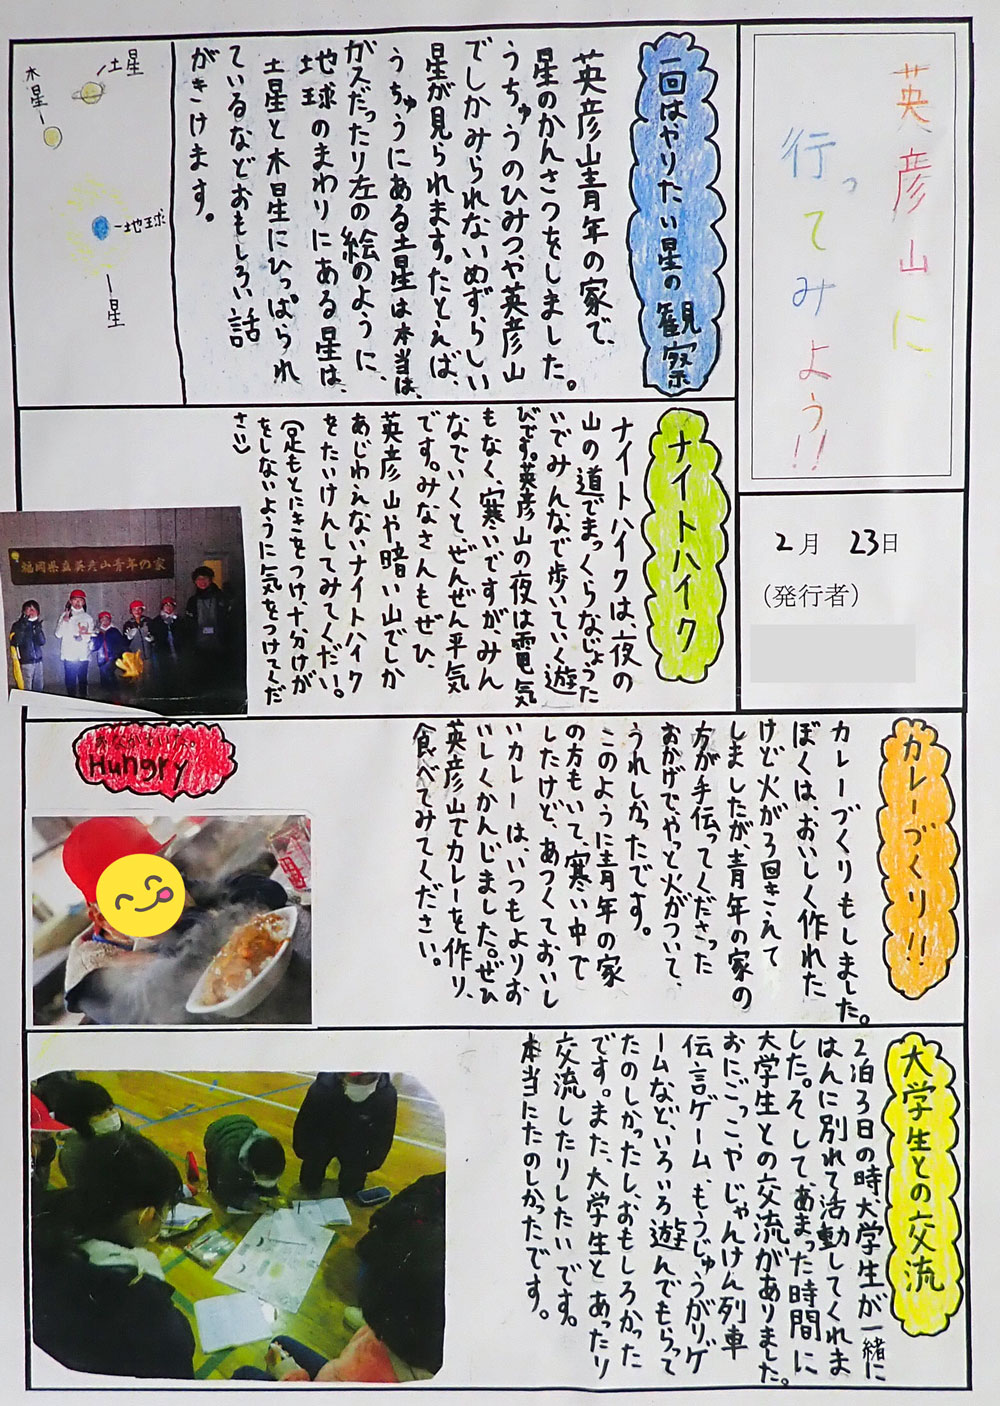 英彦山に
行ってみよう!!
2月 23日
(発行者)
一回はやりたい星の観察
英彦山青年の家で、
星のかんさつをしました。
うちゅうのひみつや英彦山
でしかみられないめずらしい
星が見られます。たとえば、
うちゅうにある土星は本当は、
ガスだったり左の絵のように、
地球のまわりにある星は、
土星と木星にひっぱられ
ているなどおもしろい話
がきけます。
土星
木星
地球
星
ナイトハイク
ナイトハイクは、夜の
山の道でまっくらなじょうた
いでみんなで歩いていく遊
びです。英彦山の夜は電気
もなく、寒いですが、みん
なでいくと、ぜんぜん平気
です。みなさんもぜひ、
英彦山や暗い山でしか
あじわえないナイトハイク
をたいけんしてみてください!。
(足もとにきをつけ、十分けが
をしないように気をつけてくだ
さい)
福岡県立英彦山青年の家
カレーづくり!!
カレーづくりもしました。
ぼくは、おいしく作れた
けど火が3回きえて
しましたが、青年の家の
方が手伝ってくださった
おかげで、やっと火がついて、
うれしかったです。
このように青年の家
の方もいて、寒い中で
したけど、あつくておいし
いカレーは、いつもよりお
いしくかんじました。ぜひ
英彦山でカレーを作り、
食べてみてください。
おなかすいた。
Hungry
大学生との交流
2泊3日の時大学生が一緒に
はんに別れて活動してくれま
した。そして、あまった時間に
大学生との交流がありました。
おにごっこやじゃんけん列車
伝言ゲーム、もうじゅうがりゲ
ームなど、いろいろ遊んでもらって
たのしかったし、おもしろかった
です。また、大学生とあったり
交流したりしたいです。
本当にたのしかったです。